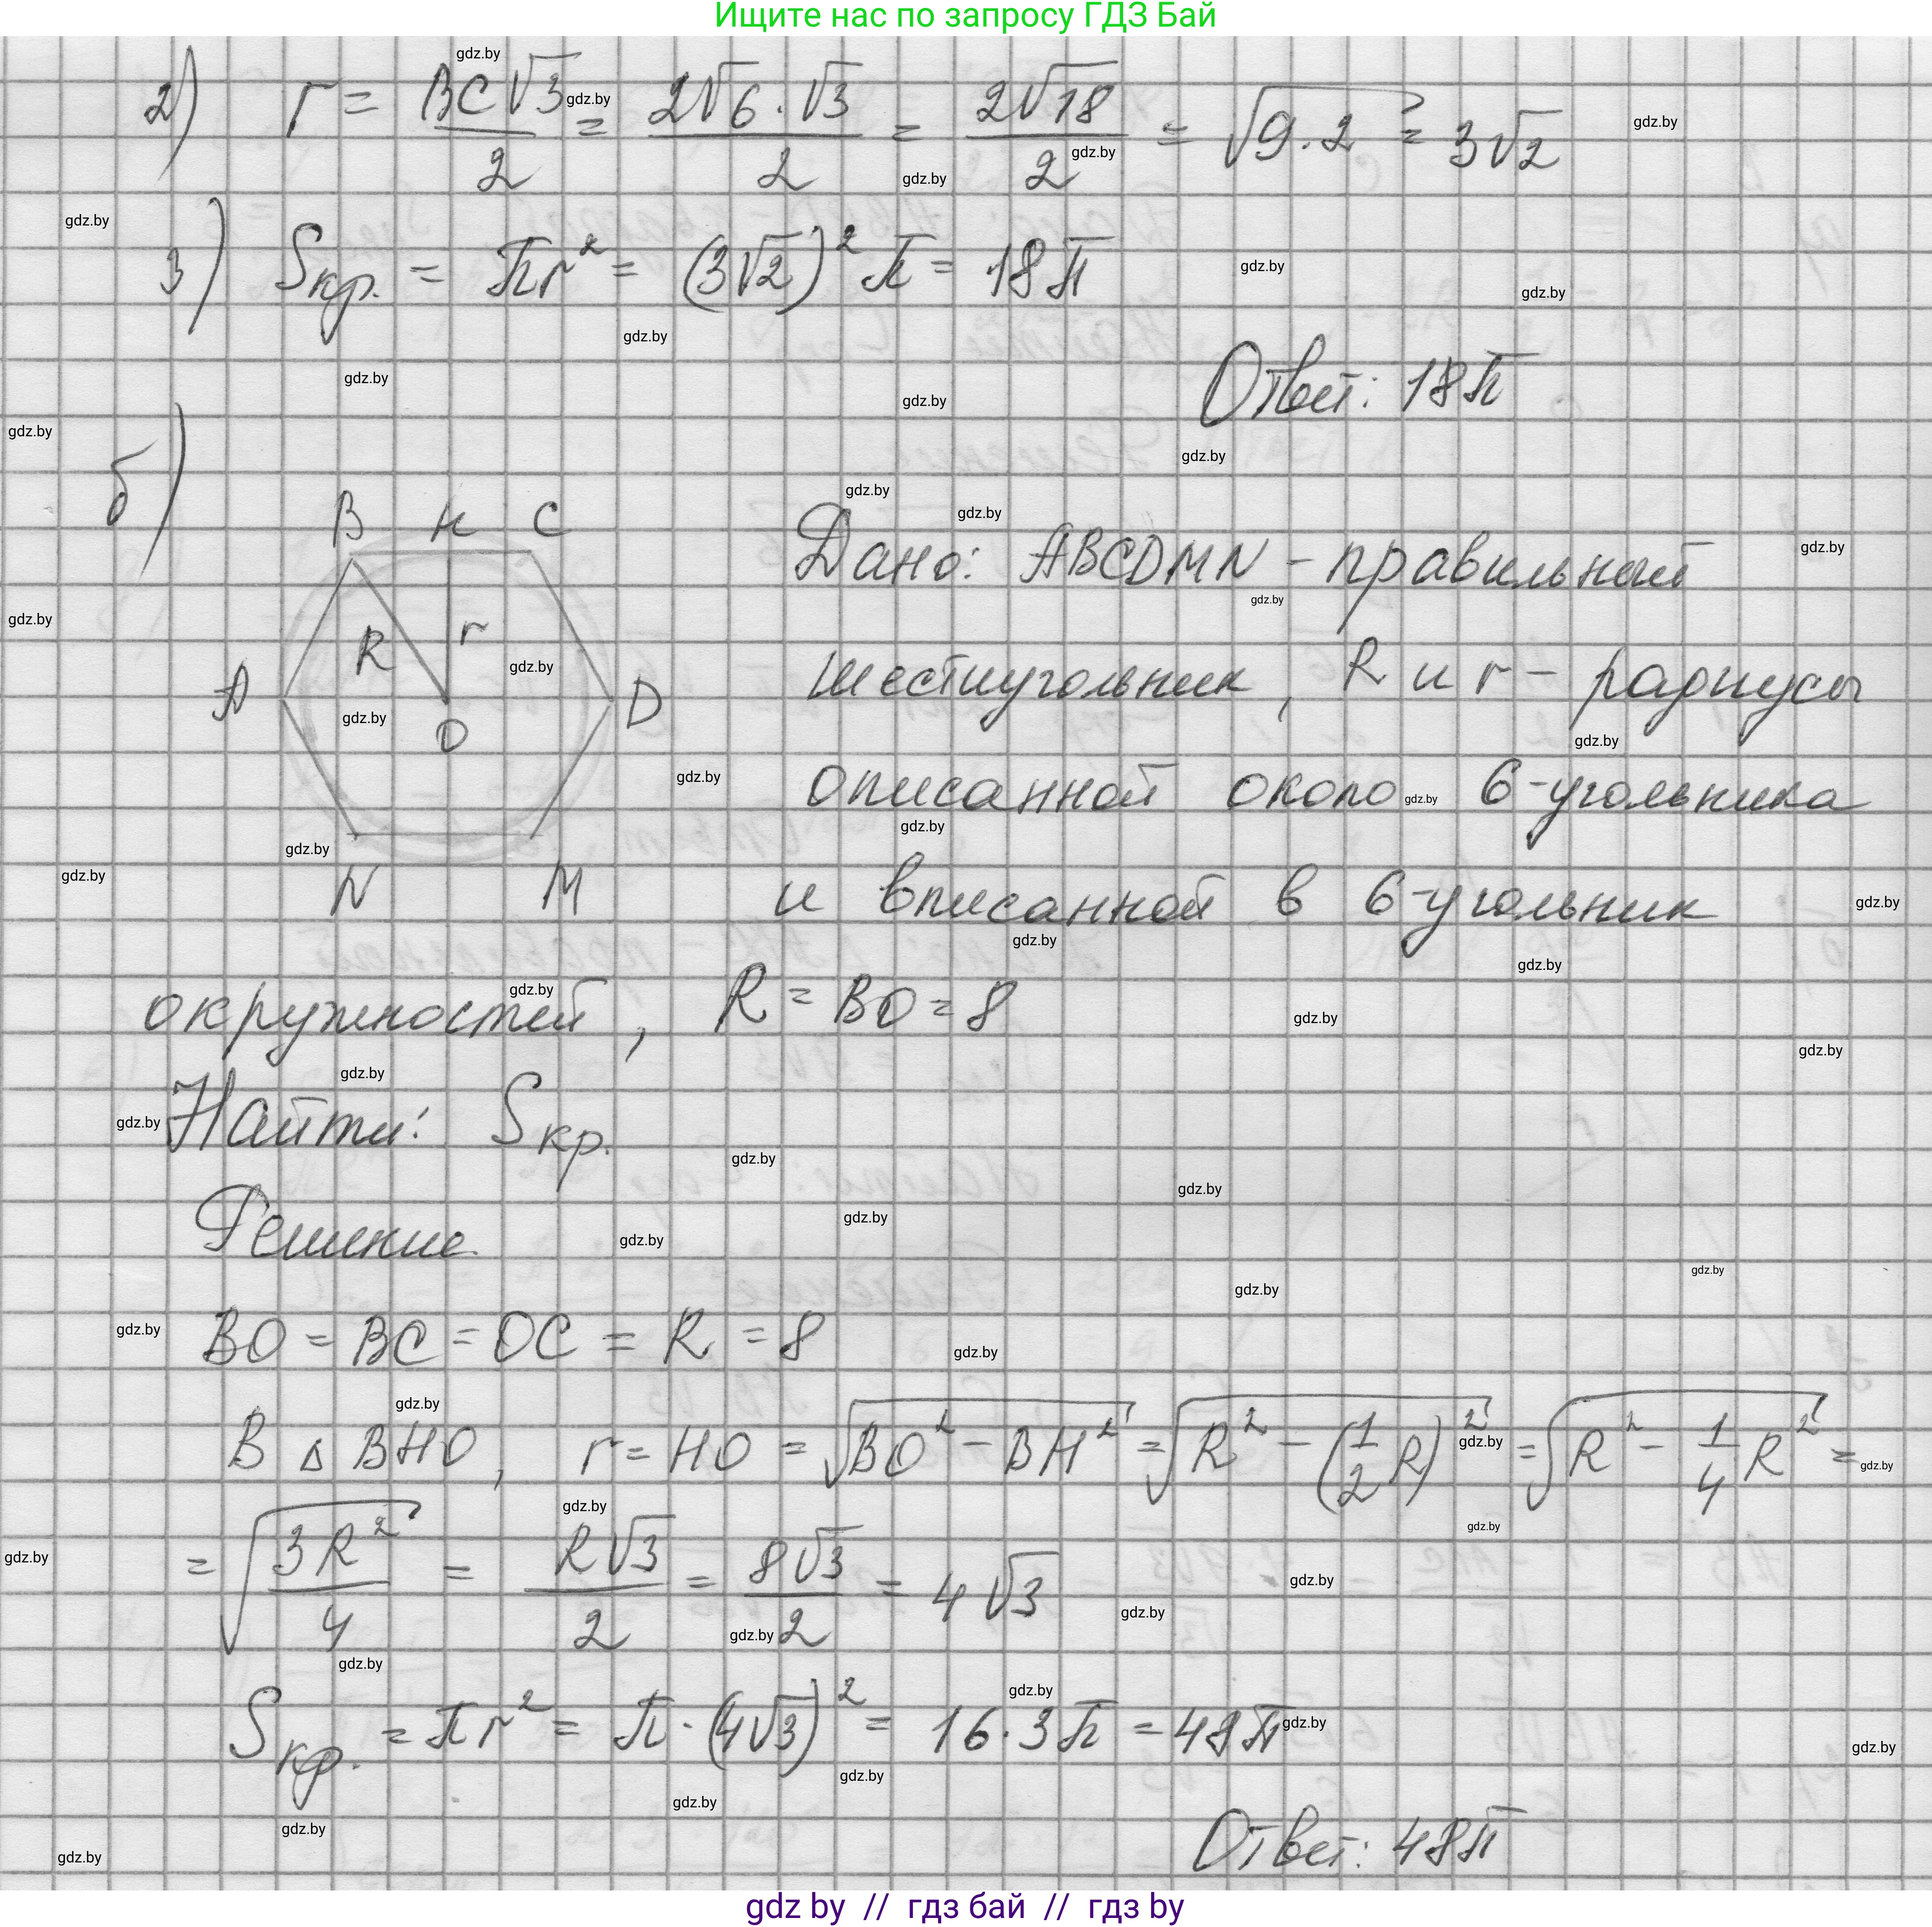 Ищите нас по запросу ГДЗ Бай
2) r = BC√3/2 = 2√6·√3/2 = 2√18/2 = √9·2 = 3√2
3) Sкр. = πr² = (3√2)²π = 18π
Ответ: 18π
б)
B H C
R r
A O D
N M
Дано: ABCDMN - правильный
шестиугольник, R и r - радиусы
описанной около 6-угольника
и вписанной в 6-угольник
окружностей, R = BO = 8
Найти: Sкр.
Решение
BO = BC = OC = R = 8
В △BHO, r = HO = √(BO² - BH²) = √(R² - (1/2 R)²) = √(R² - 1/4 R²) =
= √(3R²/4) = R√3/2 = 8√3/2 = 4√3
Sкр. = πr² = π·(4√3)² = 16·3π = 48π
Ответ: 48π
gdz by // гдз бай // гдз by